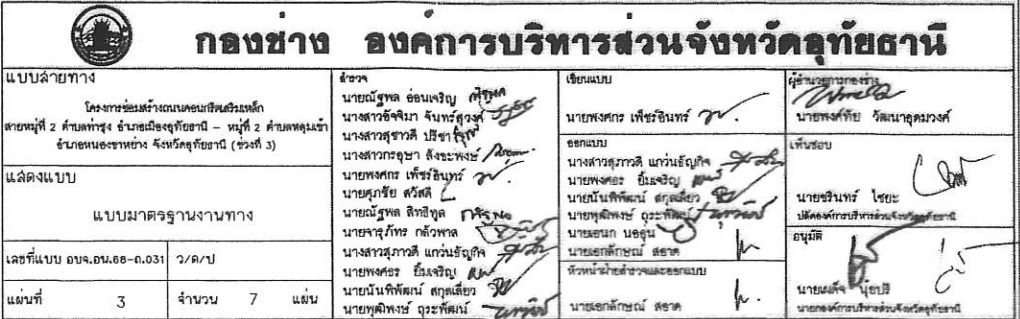 กองช่าง องค์การบริหารส่วนจังหวัดอุทัยธานี
แบบสายทาง
โครงการซ่อมสร้างถนนคอนกรีตเสริมเหล็ก
สายหมู่ที่ 2 ตำบลท่าซุง อำเภอเมืองอุทัยธานี - หมู่ที่ 2 ตำบลหลุมเข้า
อำเภอหนองขาหย่าง จังหวัดอุทัยธานี (ช่วงที่ 3)
แสดงแบบ
แบบมาตรฐานงานทาง
เลขที่แบบ อบจ.อน.68-ถ.031 ว/ด/ป
แผ่นที่ 3 จำนวน 7 แผ่น
สำรวจ
นายณัฐพล อ่อนเจริญ
นางสาวอัจจิมา จันทร์สุวงศ์
นางสาวสุชาวดี ปรีชา
นางสาวกรอุษา สังขะพงษ์
นายพงศกร เพ็ชร์อินทร์
นายศุภชัย สวัสดี
นายณัฐพล สิทธิทูล
นายจารุภัทร กล้วพาล
นางสาวสุภาวดี แกว่นธัญกิจ
นายพงศธร ยิ้มเจริญ
นายนันพิพัฒน์ สกุลเลี่ยว
นายพุฒิพงษ์ ถุระพัฒน์
เขียนแบบ
นายพงศกร เพ็ชร์อินทร์
ออกแบบ
นางสาวสุภาวดี แกว่นธัญกิจ
นายพงศธร ยิ้มเจริญ
นายนันพิพัฒน์ สกุลเลี่ยว
นายพุฒิพงษ์ ถุระพัฒน์
นายเอนก นออุ่น
นายเอกลักษณ์ สอาด
หัวหน้าฝ่ายสำรวจและออกแบบ
นายเอกลักษณ์ สอาด
ผู้อำนวยการกองช่าง
นายพงศ์ทัย วัฒนาอุดมวงศ์
เห็นชอบ
นายชรินทร์ ไชยะ
ปลัดองค์การบริหารส่วนจังหวัดอุทัยธานี
อนุมัติ
นายเผด็จ นุ้ยปรี
นายกองค์การบริหารส่วนจังหวัดอุทัยธานี